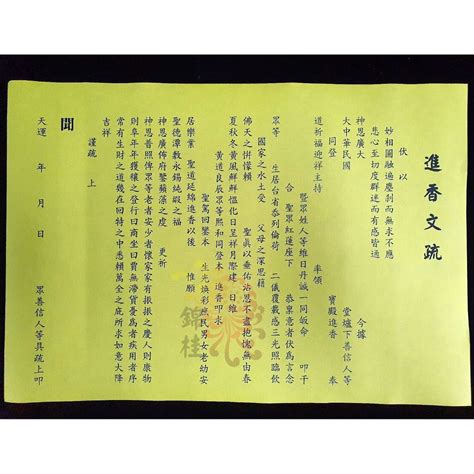 進香文疏
伏以
妙相圓融遍塵剎而無求不應
悲心至切度群迷而有感皆通
神恩廣大 今據
大中華民國 堂爐下善信人等
同登 寶殿進香 奉
道祈福迎祥主持 率領
暨眾姓人等維日丹誠一同皈命 叩干
合 聖眾紅蓮座下 恭稟意者伏為言念
眾等 生居台省忝列倫荷 二儀覆載感三光照臨飲
國家之水土受 父母之深恩藉
佛天之帡幪賴 聖真以垂佑沾恩不盡抱愧無由春
夏秋冬黃風鮮鮮慍化日呈祥月際建 日維
黃道良辰眾等熙和同登本 進香叩求
聖駕回鑾本 生光煥彩庶民男女老幼安
居樂業 道延綿進香以後 惟願
聖德潭敷永錫純嘏之福 更祈
神恩廣佈府繫蘋藻之虔
神恩普照俾眾等老者安少者懷家家有振振之慶人則康物
則阜年年獲穰之登行曰商坐曰賈無滯貨憂為者疾用者序
常有生財之道幾在回特之中悉賴萬全之庇所求如意大降
吉祥
謹疏 上
聞
天運 年 月 日 眾善信人等具疏上叩
錦桂